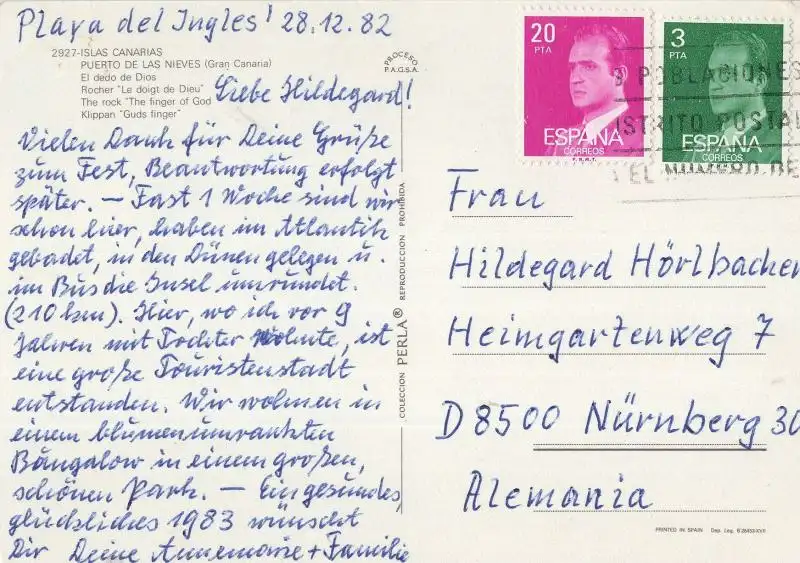 Playa del Ingles! 28.12.82
2927-ISLAS CANARIAS
PUERTO DE LAS NIEVES (Gran Canaria)
El dedo de Dios
Rocher "Le doigt de Dieu"
The rock "The finger of God
Klippan "Guds finger"
PROCESO
P.A.G.S.A.
Liebe Hildegard!
Vielen Dank für Deine Grüße
zum Fest, Beantwortung erfolgt
später. – Fast 1 Woche sind wir
schon hier, haben im Atlantik
gebadet, in den Dünen gelegen u.
im Bus die Insel umrundet.
(210 km). Hier, wo ich vor 9
Jahren mit Tochter wohnte, ist
eine große Touristenstadt
entstanden. Wir wohnen in
einem blumenumrankten
Bungalow in einem großen,
schönen Park. – Ein gesundes,
glückliches 1983 wünscht
Dir Deine Annemarie + Familie
COLECCION PERLA® REPRODUCCION PROHIBIDA
20
PTA
ESPAÑA
CORREOS
F.N.M.T.
3
PTA
ESPAÑA
CORREOS
POBLACIONES
POSTAL
EL NUMERO DE
Frau
Hildegard Hörlbacher
Heimgartenweg 7
D 8500 Nürnberg 30
Alemania
PRINTED IN SPAIN Dep. Leg. B 26453-XVII